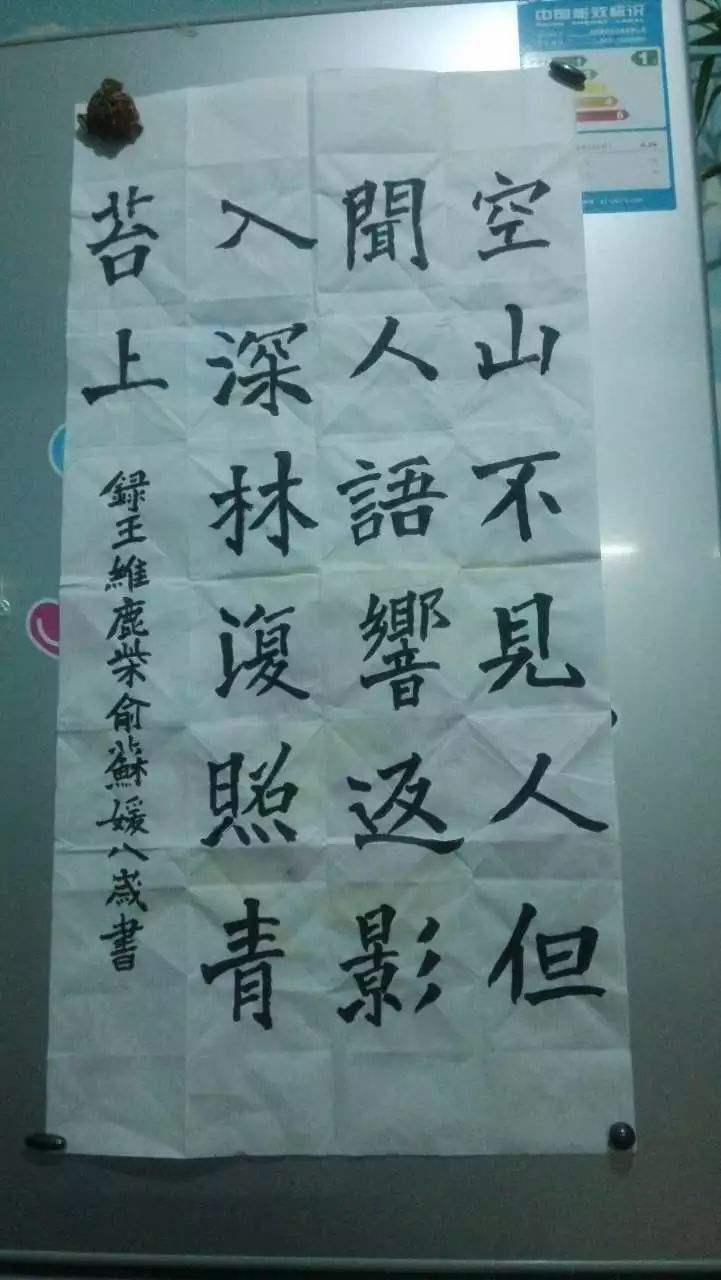 空山不見人但
聞人語響返影
入深林復照青
苔上
録王維鹿柴俞蘇媛八歲書
中国能效标识
CHINA ENERGY LABEL
1